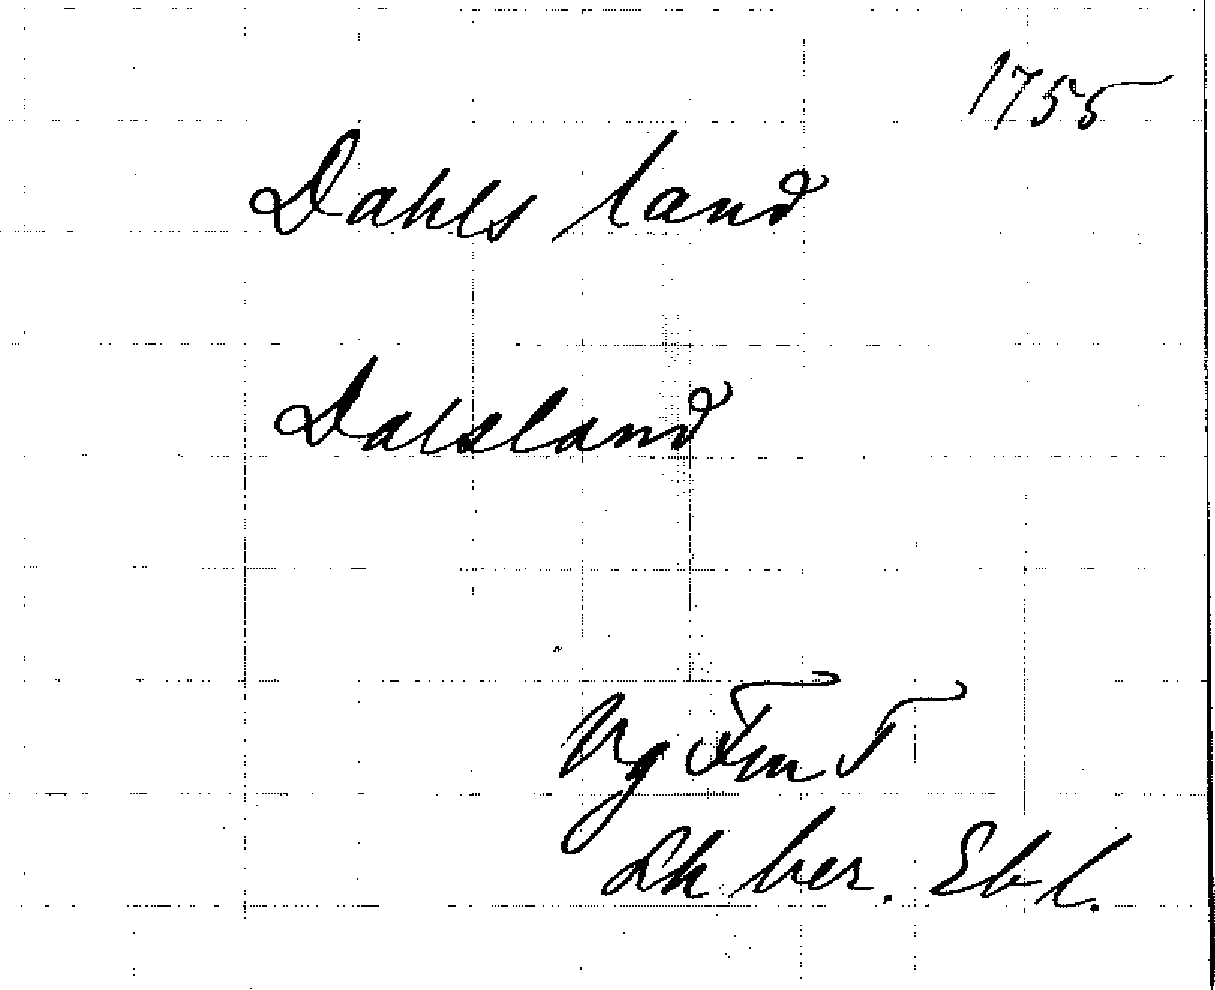 1755
Dahls land
Dalsland
Vg Fm T
Lk ber. Ebl.